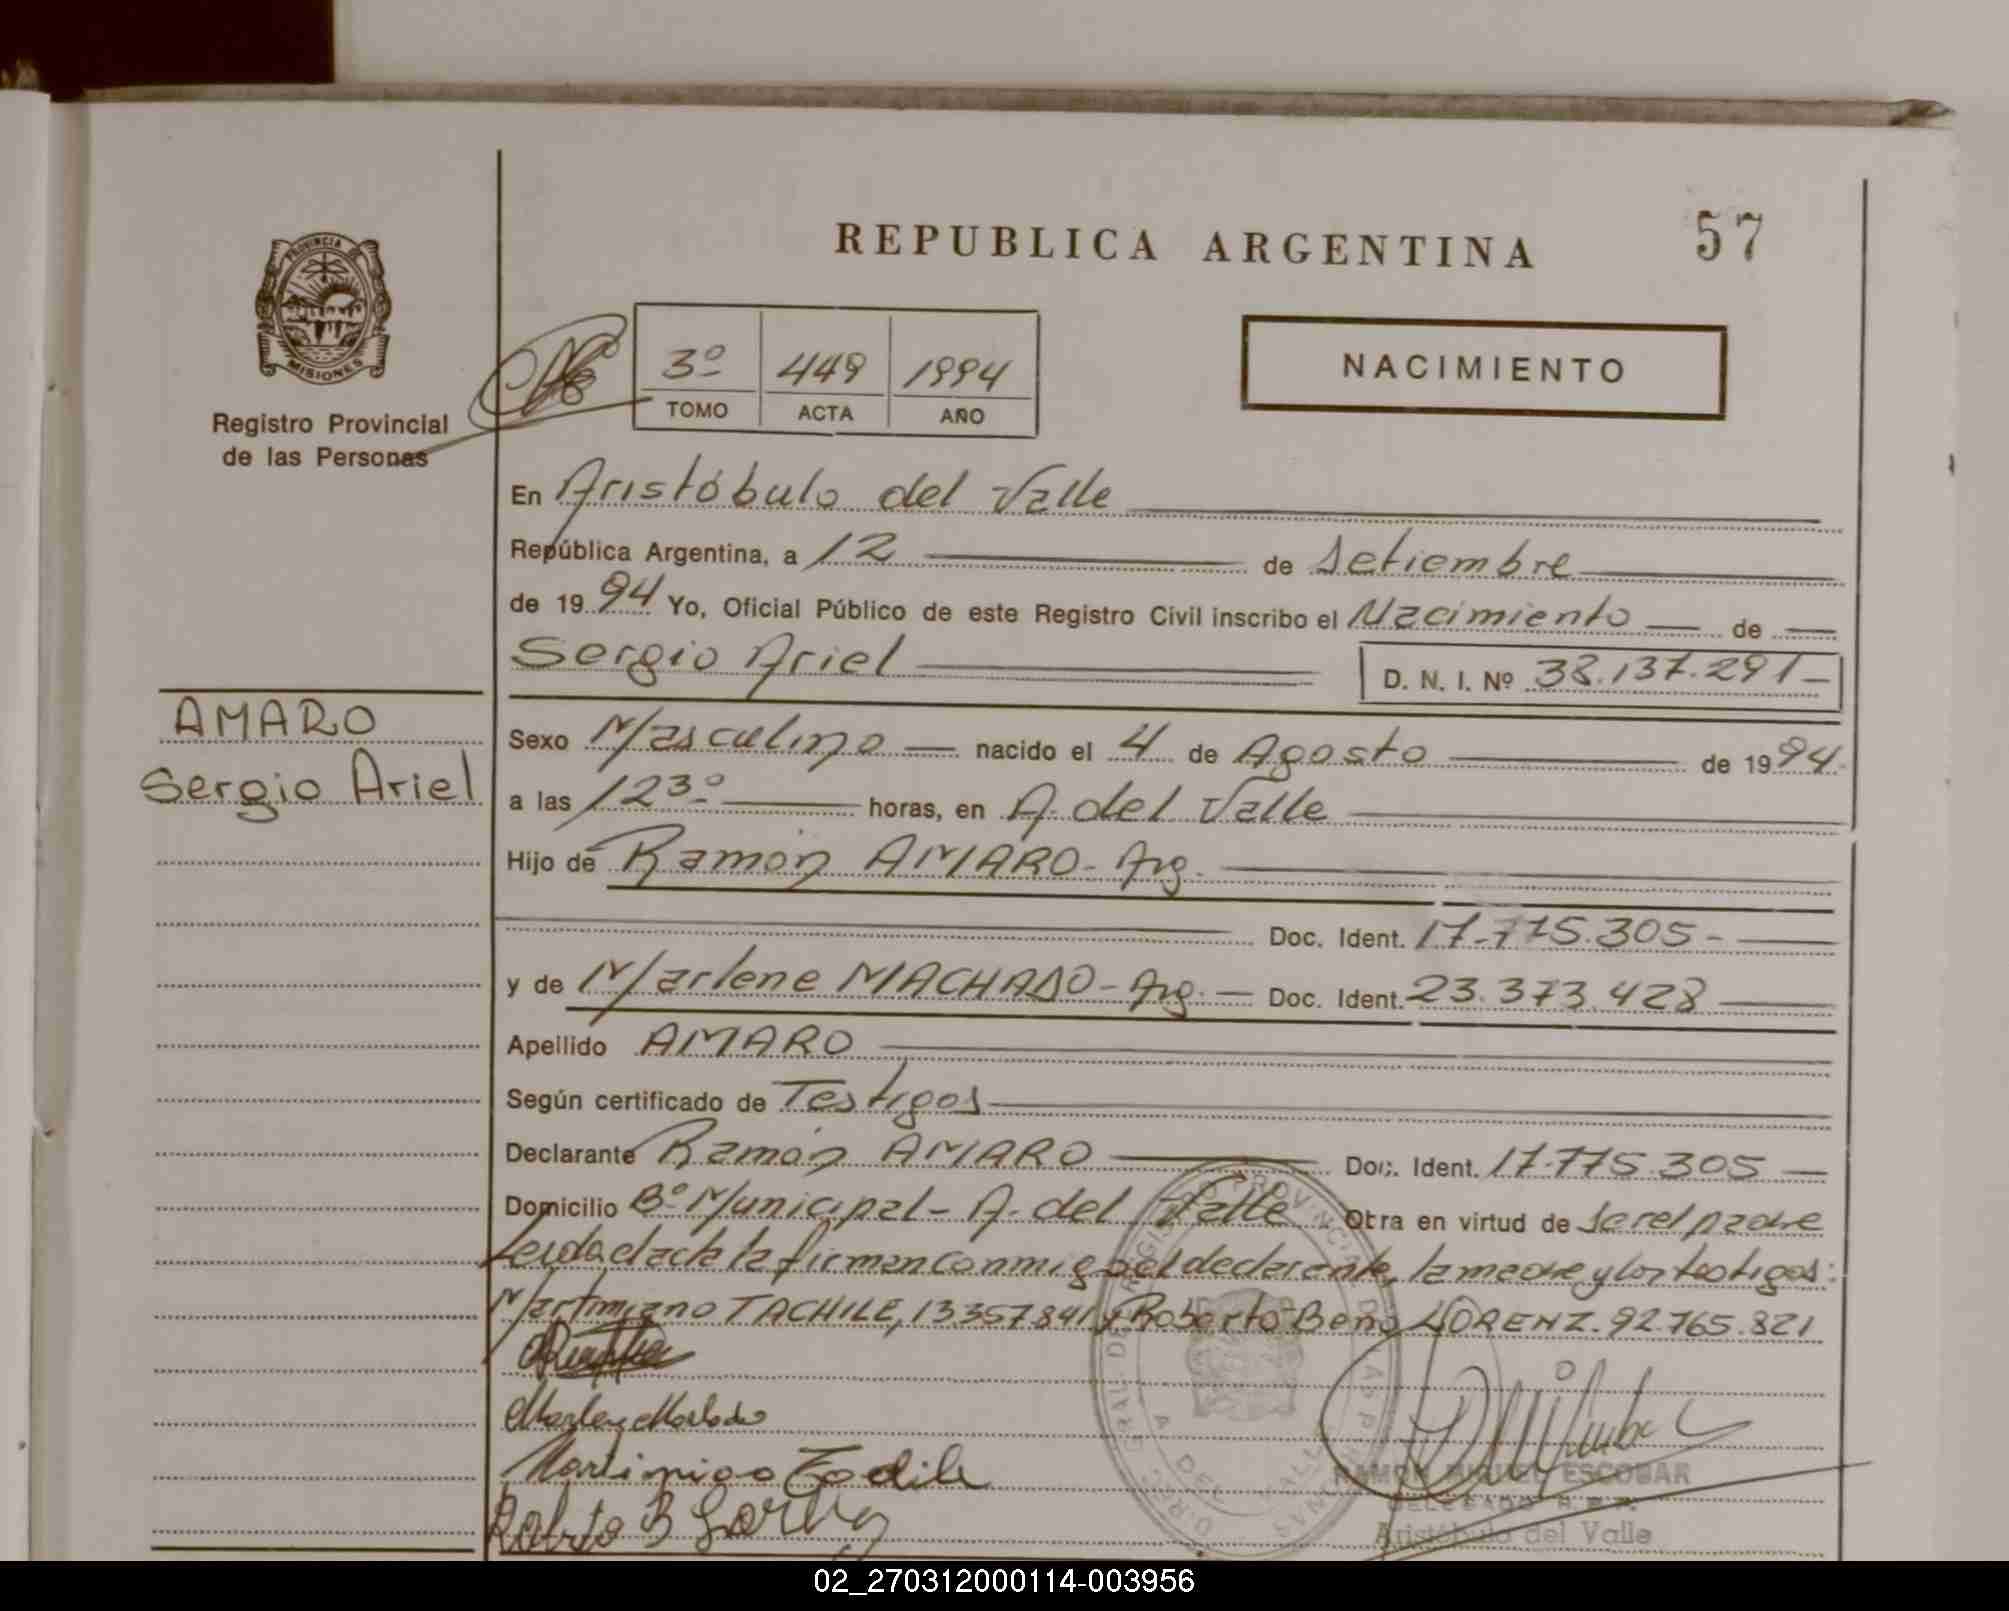 REPUBLICA ARGENTINA
57
PROVINCIA
MISIONES
Registro Provincial
de las Personas
3º 449 1994
TOMO ACTA AÑO
NACIMIENTO
En Aristóbulo del Valle
República Argentina, a 12 de Setiembre
de 1994 Yo, Oficial Público de este Registro Civil inscribo el Nacimiento de
Sergio Ariel
D. N. I. Nº 38.137.291-
AMARO
Sergio Ariel
Sexo Masculino nacido el 4 de Agosto de 1994
a las 12³º horas, en A. del Valle
Hijo de Ramón AMARO- Arg.
Doc. Ident. 17.775.305-
y de Marlene MACHADO- Arg. Doc. Ident. 23.373.428
Apellido AMARO
Según certificado de Testigos
Declarante Ramón AMARO Doc. Ident. 17.775.305
Domicilio Bº Municipal- A. del Valle Obra en virtud de ser el padre
Leida el acta la firman conmigo el declarante, la madre y los testigos:
Martimiano TACHILE, 13357841 y Roberto Beno LORENZ. 92.765.821
RAMON MIGUEL ESCOBAR
DELEGADO R.P.P.
Aristóbulo del Valle
02_270312000114-003956